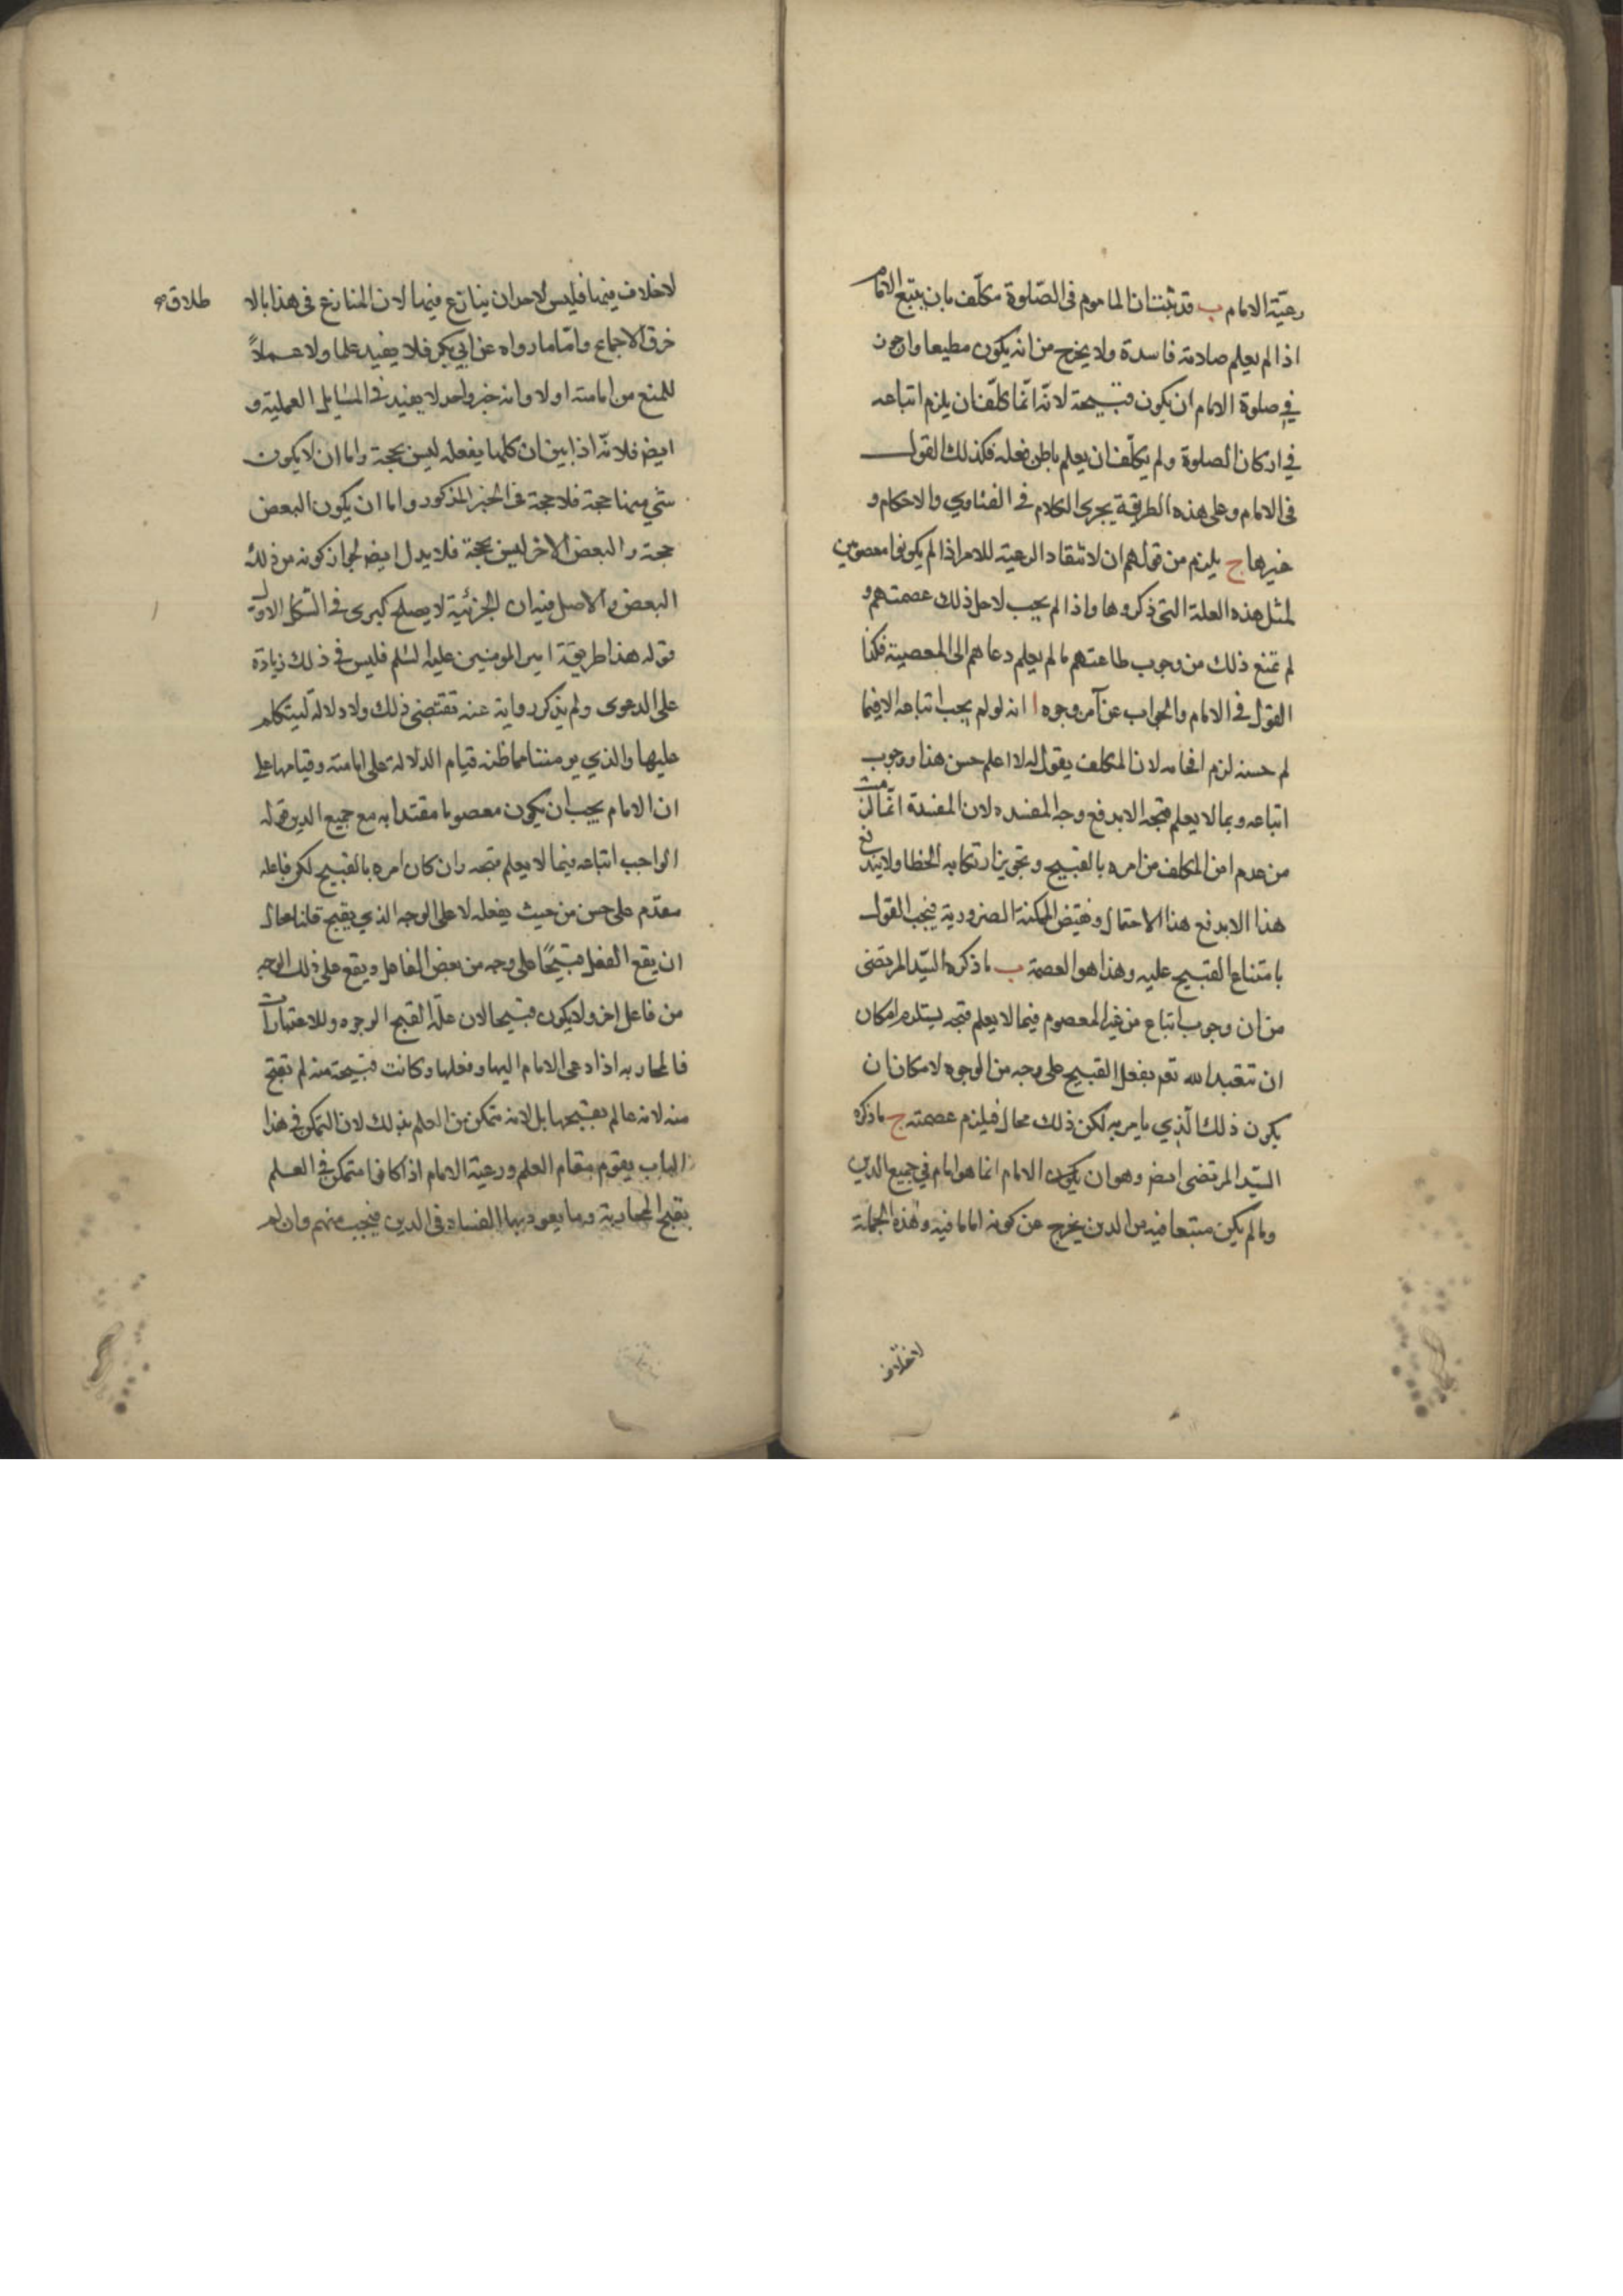 رعيّة الامام ب قد ثبت ان الماموم فى الصّلوة مكلّف بان يتبع الامام
اذا لم يعلم صلاته فاسدة ولا يخرج من انه يكون مطيعا وان جوز
فى صلوة الامام ان يكون قبيحة لانّه انّما كلّف ان يلزم اتباعه
فى اركان الصلوة ولم يكلّف ان يعلم باطن فعله فكذلك القول
فى الامام وعلى هذه الطريقة يجرى الكلام فى الفتاوى والاحكام و
غيرها ج يلزم من قولهم ان لا تنقاد الرعية للامرا اذا لم يكونوا معصومين
لمثل هذه العلة التى ذكروها واذا لم يجب لاجل ذلك عصمتهم و
لم تمنع ذلك من وجوب طاعتهم ما لم يعلم دعاهم الى المعصية فكذا
القول فى الامام والجواب عن آ من وجوه ا انه لو لم يجب اتباعه الا فيما
لم حسنه لزم افحامه لان المكلف يقول له لا اعلم حسن هذا ووجوب
اتباعه وبما لا يعلم قبحه لا يدفع وجه المفسده لان المفسدة انّما لزمت
من عدم امن المكلف من امره بالقبيح وتجويز ارتكابه الخطا ولا يندفع
هذا الا بدفع هذا الاحتمال ونقيض الممكنة الضرورية فيجب القول
بامتناع القبيح عليه وهذا هو العصمة ب ما ذكره السيّد المرتضى
من ان وجوب اتباع من غير المعصوم فيما لا يعلم قبحه يستلزم امكان
ان تتعبد الله تعم بفعل القبيح على وجه من الوجوه لامكان ان
يكون ذلك الّذي يامر به لكن ذلك محال فيلزم عصمته ج ما ذكره
السيّد المرتضى ايض وهو ان يكون الامام انما هو امام في جميع الدين
وما لم يكن متبعا فيه من الدين يخرج عن كونه اماما فيه وهذه الجملة
لا خلاف
لا خلاف فيها فليس لاحد ان ينازع فيها لان المنازع فى هذا بالا طلاق
خرق الاجماع وامّا ما رواه عن ابي بكر فلا يفيد علما ولا عملاً
للمنع من امامته اولا وانه خبر واحد لا يفيد فى المسايل العملية و
ايض فلانّه اذا بين ان كلما يفعله ليس بحجة واما ان لا يكون
شئ منها حجة فلا حجة فى الخبر المذكور واما ان يكون البعض
حجة والبعض الاخر ليس بحجة فلا يدل ايض لجواز كونه من ذلك
البعض والاصل فيه ان الجزئية لا يصلح كبرى فى الشكل الاول
قوله هذا طريقة امير المومنين عليه السلم فليس فى ذلك زيادة
على الدعوى ولم يذكر رواية عنه تقتضى ذلك ولا دلالة ليتكلم
عليها والذي يومننا مما ظنه قيام الدلالة على امامته وقيامها على
ان الامام يجب ان يكون معصوما مقتدا به مع جميع الدين قوله
الواجب اتباعه فيما لا يعلم قبحه وان كان امره بالقبيح لكن فاعله
مقدّم على حسن من حيث يفعله لا على الوجه الذي يقبح قلنا محال
ان يقع الفعل قبيحًا على وجه من بعض الفاعل ويقع على ذلك الوجه
من فاعل اخر ولا يكون قبيحا لان علّة القبح الوجوه والاعتبارات
فالمحاربه اذا دعى الامام اليها وفعلها وكانت قبيحة منه لم تقبح
منه لانه عالم بقبحها بل لانه متمكن من العلم بذلك لان التمكن فى هذا
الباب يقوم مقام العلم ورعية الامام اذا كانوا متمكن فى العلم
بقبح المحاربة وما يعود بها الفساد فى الدين فيجب منهم وان لم